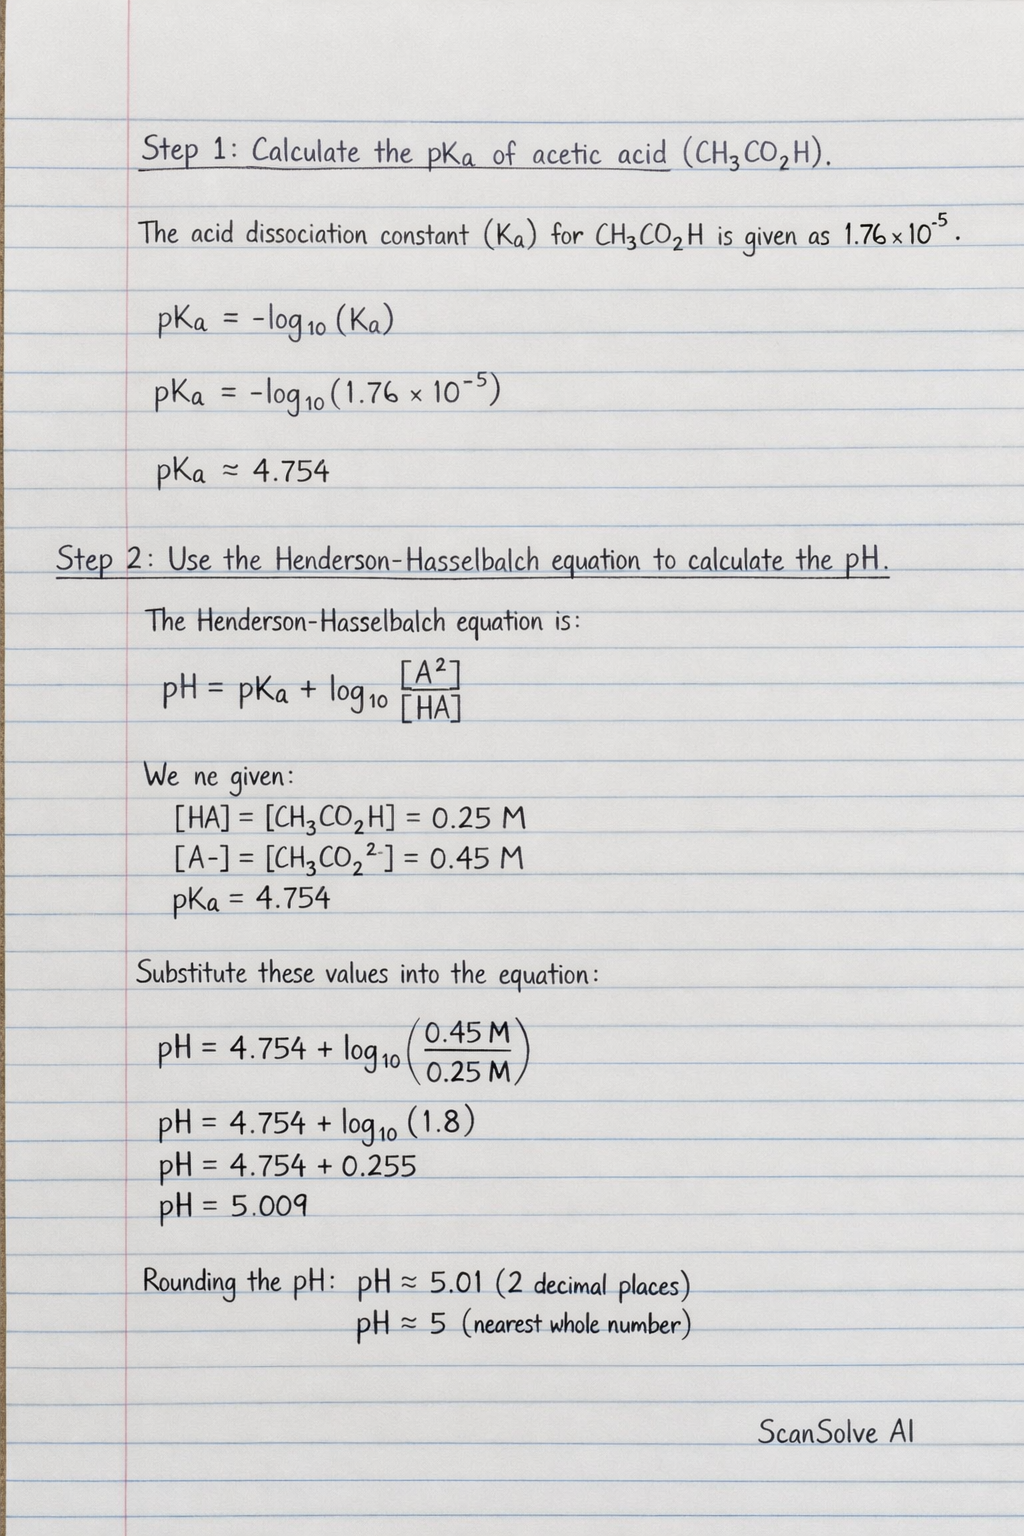 Step 1: Calculate the pKa of acetic acid (CH₃CO₂H).
The acid dissociation constant (Ka) for CH₃CO₂H is given as 1.76×10⁻⁵.
pKa = -log₁₀ (Ka)
pKa = -log₁₀(1.76 × 10⁻⁵)
pKa ≈ 4.754
Step 2: Use the Henderson-Hasselbalch equation to calculate the pH.
The Henderson-Hasselbalch equation is:
pH = pKa + log₁₀ [A²]/[HA]
We ne given:
[HA] = [CH₃CO₂H] = 0.25 M
[A-] = [CH₃CO₂²⁻] = 0.45 M
pKa = 4.754
Substitute these values into the equation:
pH = 4.754 + log₁₀ (0.45 M/0.25 M)
pH = 4.754 + log₁₀ (1.8)
pH = 4.754 + 0.255
pH = 5.009
Rounding the pH: pH ≈ 5.01 (2 decimal places)
pH ≈ 5 (nearest whole number)
ScanSolve AI